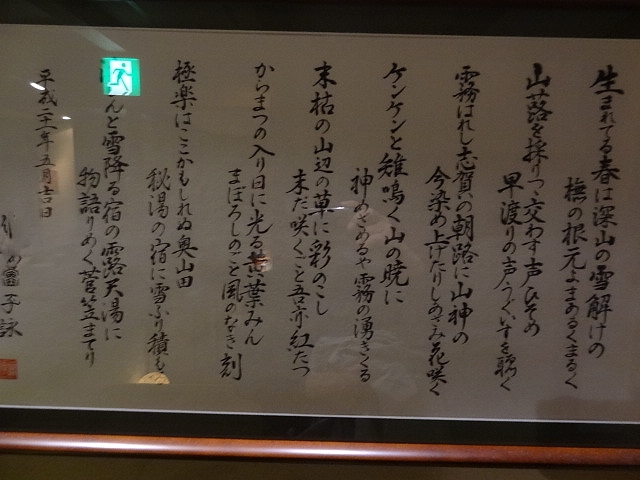 生まれてる春は深山の雪解けの
橅の根元よまあるくまるく
山蕗を採りつ交わす声ひそめ
早渡りの声うぐいすを聴く
霧はれし志賀の朝路に山神の
今染め上げたりしのみ花咲く
ケンケンと雉鳴く山の暁に
神のこめるや霧の湧きくる
末枯の山辺の草に彩のこし
未だ咲くごと吾亦紅たつ
からまつの入り日に光る黄葉みん
まぼろしのごと風のなき刻
極楽はここかもしれぬ奥山田
秘湯の宿に雪ふり積も
んと雪降る宿の露天湯に
物語りめく菅笠まてり
平成二十一年五月吉日
子詠